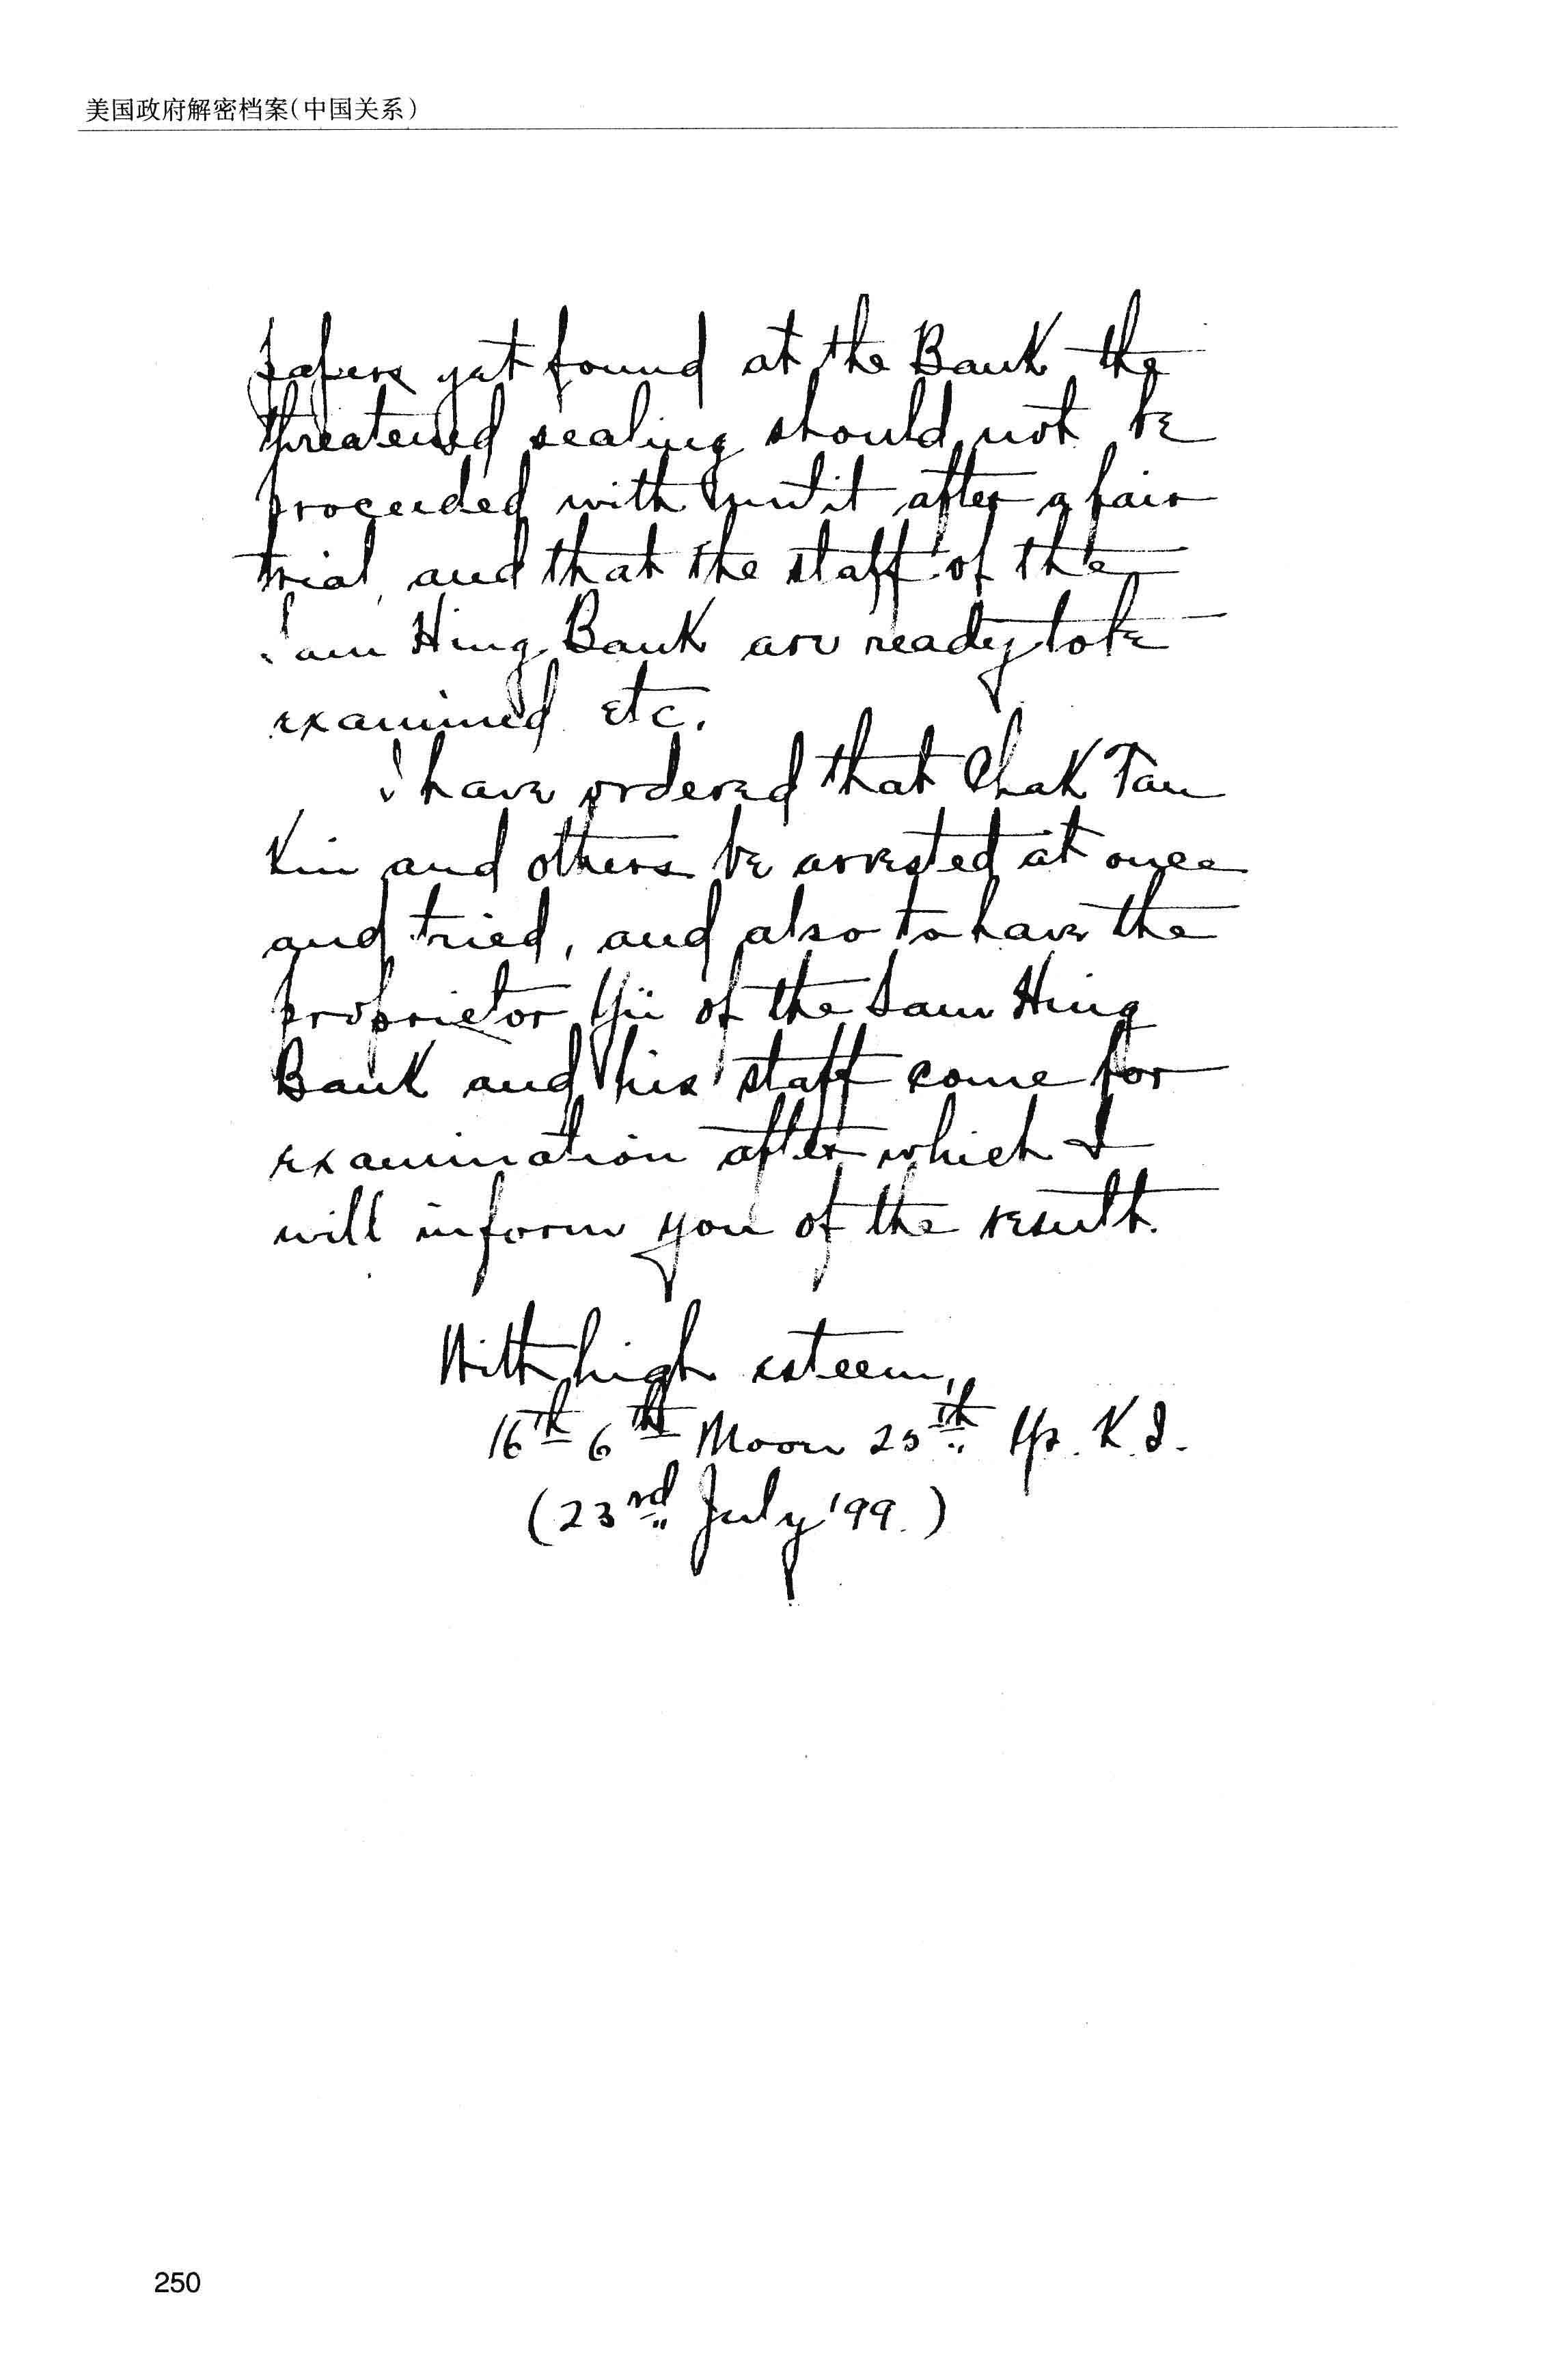 美国政府解密档案(中国关系)
papers yet found at the Bank the
threatened sealing should not be
proceeded with until after a fair
trial, and that the staff of the
Sam Hing Bank are ready to be
examined etc.
I have ordered that Chak Tau
Kin and others be arrested at once
and tried, and also to have the
proprietor Yü of the Sam Hing
Bank and his staff come for
examination after which I
will inform you of the result.
With high esteem,
16th 6th Moon 25th Yr. K. S.
(23rd July '99.)
250